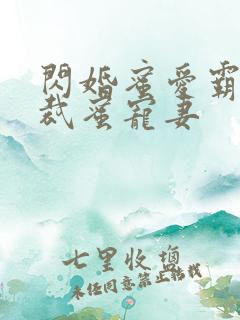 閃婚蜜愛霸
裁蜜寵妻
七里收鹽
未經同意禁止轉載